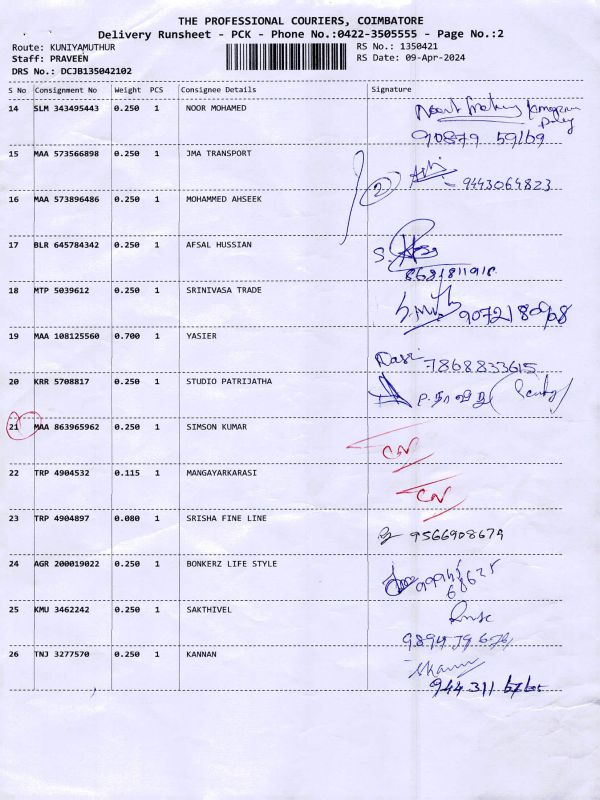 THE PROFESSIONAL COURIERS, COIMBATORE
Delivery Runsheet - PCK - Phone No.:0422-3505555 - Page No.:2
Route: KUNIYAMUTHUR RS No.: 1350421
Staff: PRAVEEN RS Date: 09-Apr-2024
DRS No.: DCJB135042102
S No Consignment No Weight PCS Consignee Details Signature
14 SLM 343495443 0.250 1 NOOR MOHAMED
90879 59169
15 MAA 573566898 0.250 1 JMA TRANSPORT
2 - 9443064823
16 MAA 573896486 0.250 1 MOHAMMED AHSEEK
17 BLR 645784342 0.250 1 AFSAL HUSSIAN
18 MTP 5039612 0.250 1 SRINIVASA TRADE
19 MAA 108125560 0.700 1 YASIER
7868833615
20 KRR 5708817 0.250 1 STUDIO PATRIJATHA
21 MAA 863965962 0.250 1 SIMSON KUMAR CN
22 TRP 4904532 0.115 1 MANGAYARKARASI CN
23 TRP 4904897 0.080 1 SRISHA FINE LINE 9566908679
24 AGR 200019022 0.250 1 BONKERZ LIFE STYLE
25 KMU 3462242 0.250 1 SAKTHIVEL
26 TNJ 3277570 0.250 1 KANNAN